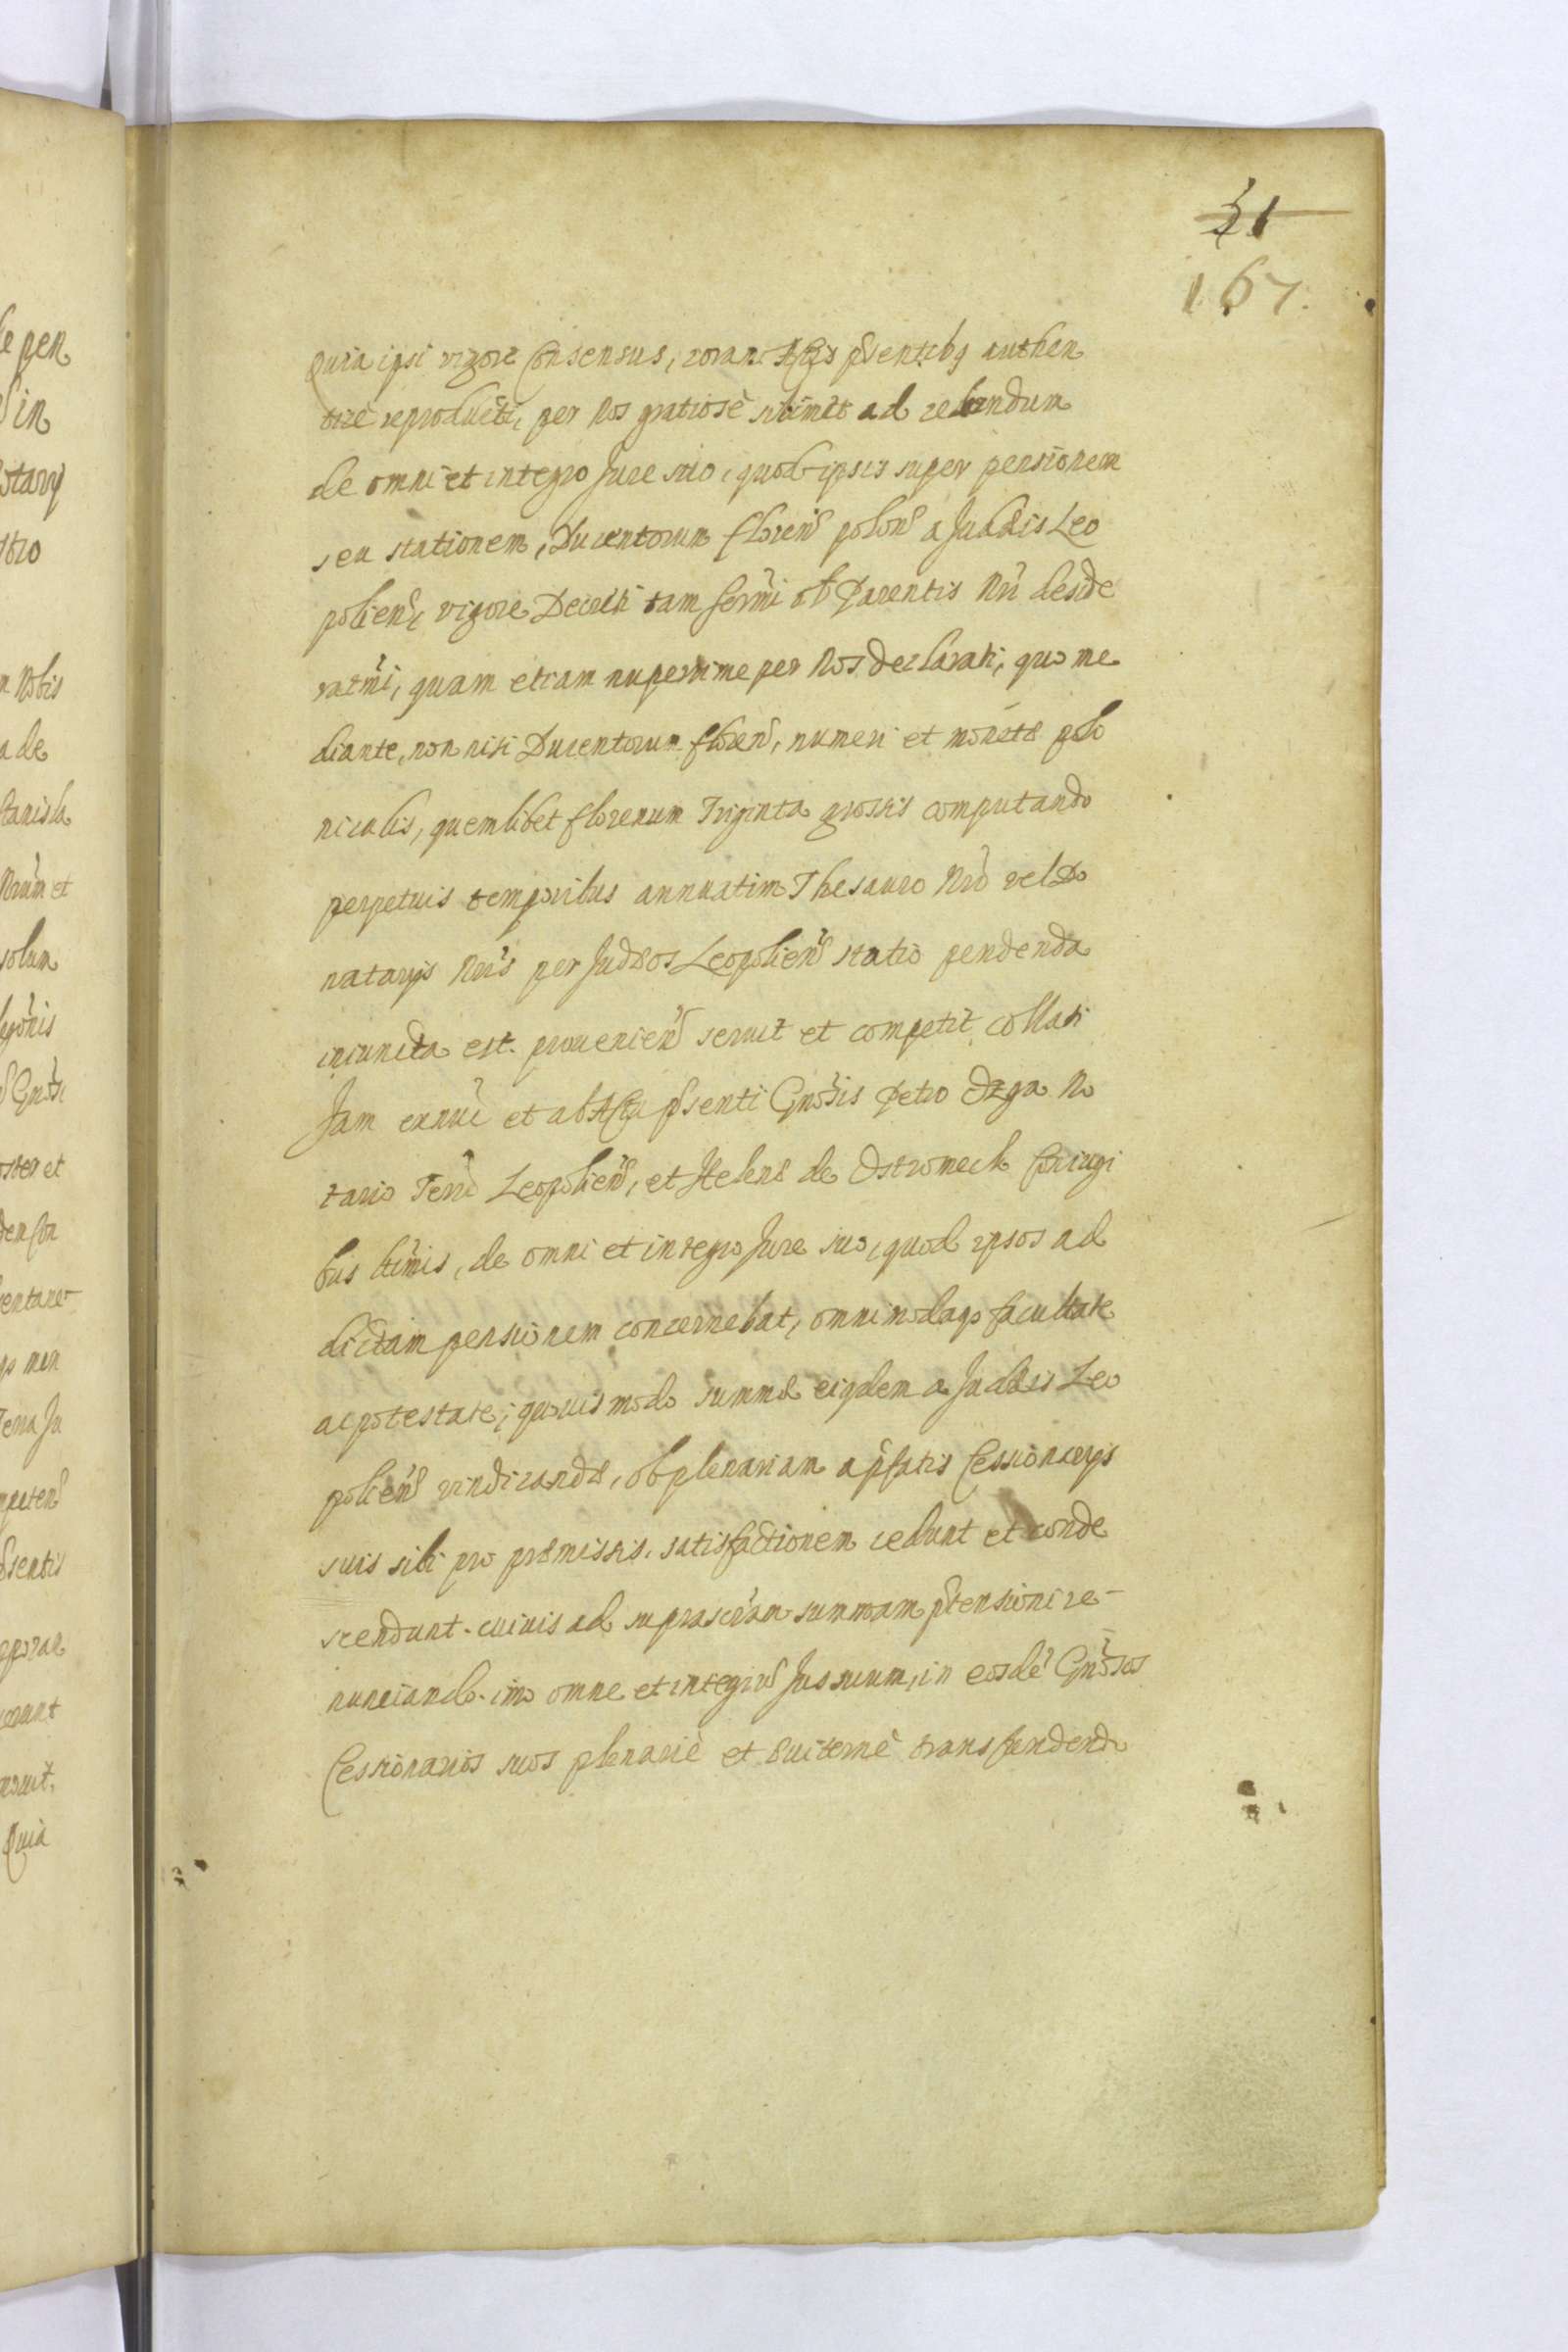 51
167.
Quia ipsi vigore Consensus, coram Actis pñtibq authen
ticè reproducti, per Nos gratiosè ad cedendum
de omni et integro Jure suo, quod ipsis super pensionem
seu stationem, Ducentorum floren̄ polon̄ a Judæis Leo
polien̄, vigore Decreti tam Sermi olĩ Parentis Nri̇ deside
ratm̃i, quam etiam nuperrime per Nos declarati, quo me
diante, non nisi Ducentorum floren̄, numeri et monetæ polo
nicalis, quemlibet florenum Triginta grossis computando
perpetuis temporibus annuatim Thesauro Nrõ vel Do
natarijs Nrĩs per Judæos Leopolien̄ statio pendenda
iniuncta est. prouenien̄ seruit et competit, collati
Jam exnũc et ab Actu pñsenti Gnõsis Petro Ozga No
tario Terrõ Leopolien̄, et Helenæ de Ostromeck Coniugi
bus ltĩmis, de omni et integro Jure suo, quod ipsos ad
dictam pensionem concernebat, omnimodaqȝ facultate
ac potestate, quouis modo summæ eiqdem a Judæis Leo
polien̄ vindicandæ, ob plenariam a pñfatis Cessionarijs
suis sibi pro præmissis, satisfactionem cedunt et conde
scendunt. cuiuis ad suprascr̃am summam pñtensioni re-
nunciando. imo omne et integrũ Jus suum, in eosdẽ Gnõsos
Cessionarios suos plenariè et æuiternè transfundendo